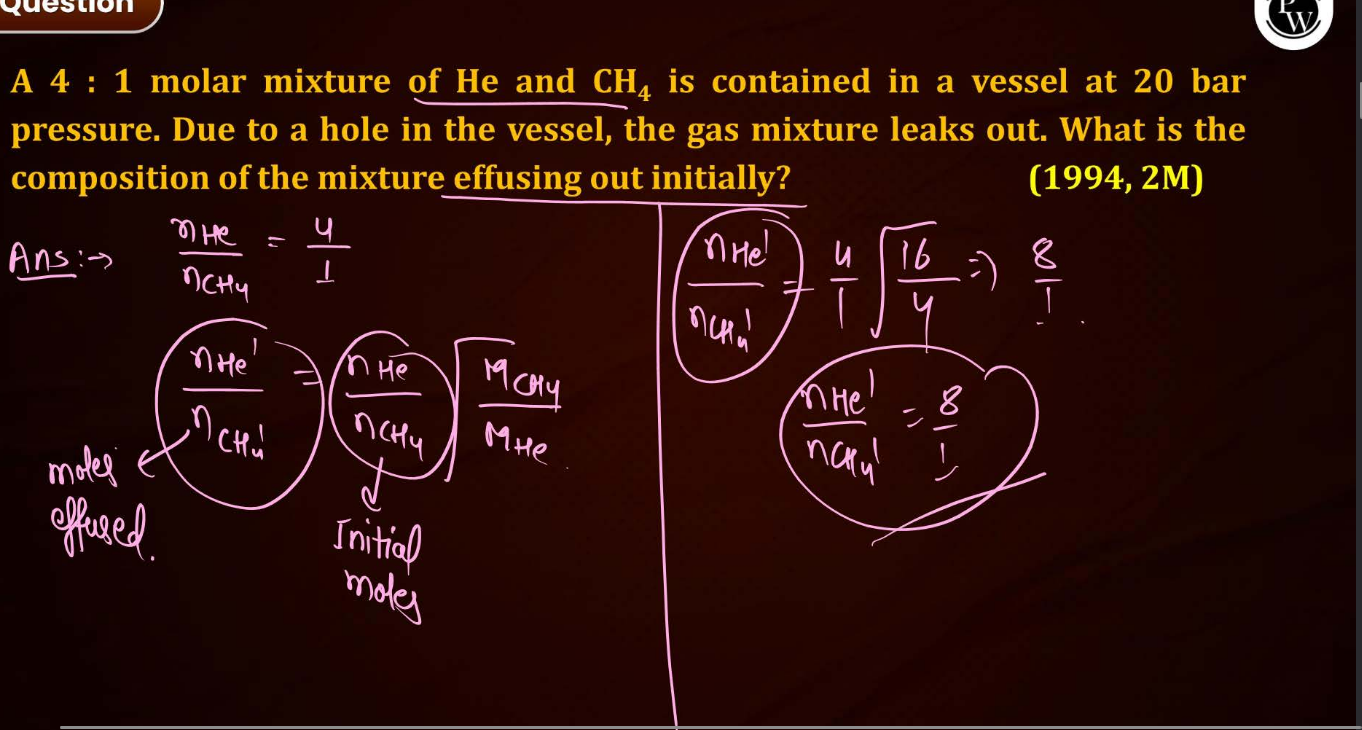 Question
PW
A 4 : 1 molar mixture of He and CH₄ is contained in a vessel at 20 bar
pressure. Due to a hole in the vessel, the gas mixture leaks out. What is the
composition of the mixture effusing out initially? (1994, 2M)
Ans:→ nHe/nCH4 = 4/1
nHe'/nCH4' = nHe/nCH4 √(MCH4/MHe)
moles effused.
Initial moles
nHe'/nCH4' = 4/1 √(16/4) ⇒ 8/1
nHe'/nCH4' = 8/1